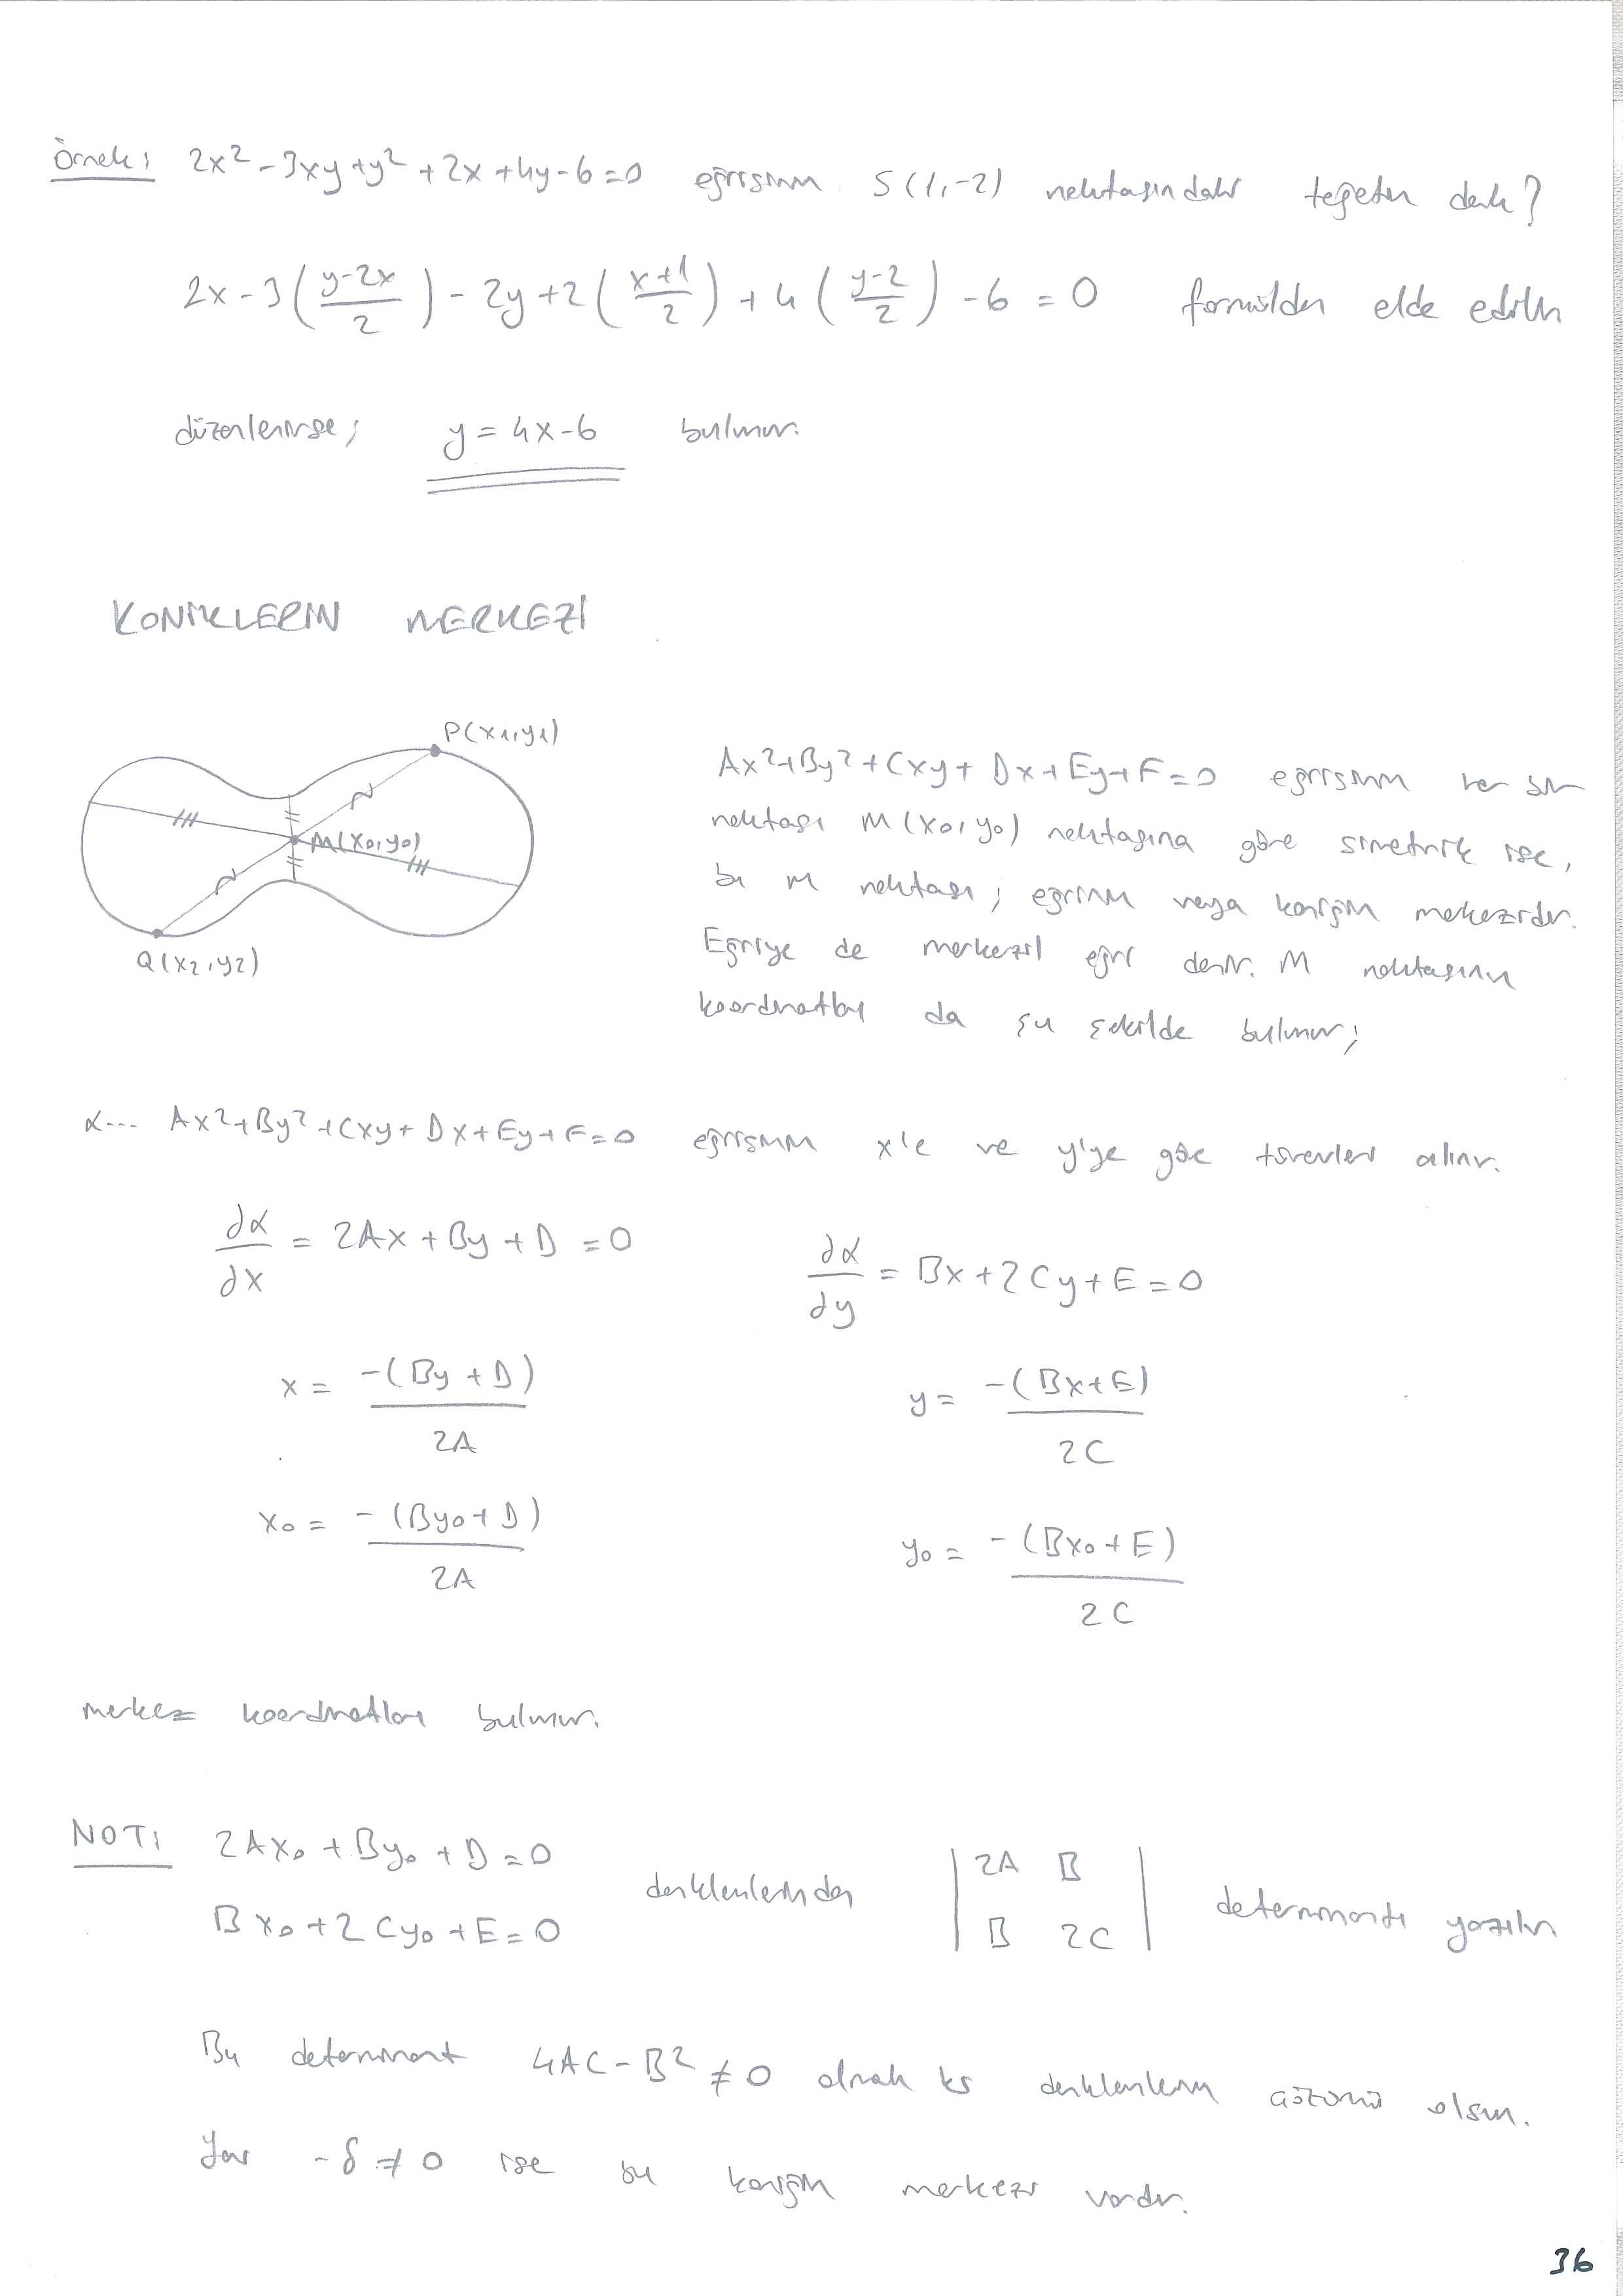 Örnek: 2x² - 3xy + y² + 2x + 4y - 6 = 0 eğrisinin S(1,-2) noktasındaki teğetin denk?
2x - 3((y-2x)/2) - 2y + 2((x+1)/2) + 4((y-2)/2) - 6 = 0 formülden elde edilir
düzenlenirse; y = 4x-6 bulunur.
KONİKLERİN MERKEZİ
P(x1,y1)
M(x0,y0)
Q(x2,y2)
Ax²+By²+Cxy+Dx+Ey+F=0 eğrisinin her bir
noktası M(x0,y0) noktasına göre simetrik ise,
bu M noktası; eğrinin veya koniğin merkezidir.
Eğriye de merkezil eğri denir. M noktasının
koordinatları da şu şekilde bulunur;
α... Ax²+By²+Cxy+Dx+Ey+F=0 eğrisinin x'e ve y'ye göre türevleri alınır.
∂α/∂x = 2Ax + By + D = 0 ∂α/∂y = Bx + 2Cy + E = 0
x = -(By + D)/2A y = -(Bx+E)/2C
x0 = -(By0 + D)/2A y0 = -(Bx0 + E)/2C
merkez koordinatları bulunur.
NOT: 2Ax0 + By0 + D = 0
Bx0 + 2Cy0 + E = 0 denklemlerinden |2A B| determinantı yazılır
|B 2C|
Bu determinant 4AC - B² ≠ 0 olmalı ki denklemlerin çözümü olsun.
Yani -δ ≠ 0 ise bu koniğin merkezi vardır.
36